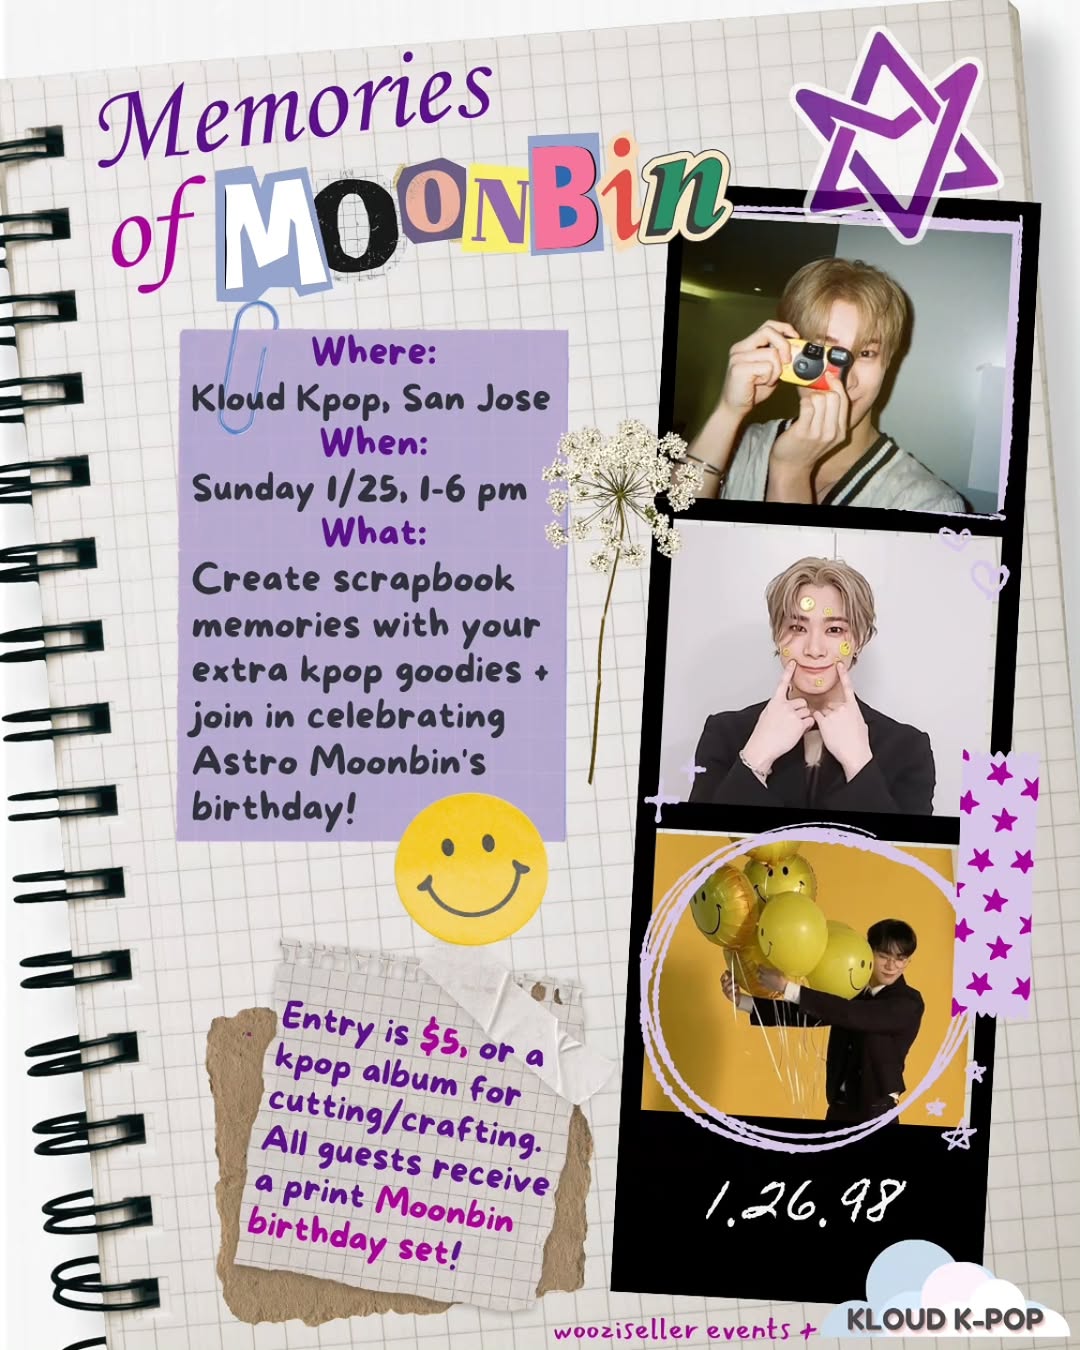 Memories
of MOONBin
Where:
Kloud Kpop, San Jose
When:
Sunday 1/25, 1-6 pm
What:
Create scrapbook
memories with your
extra kpop goodies +
join in celebrating
Astro Moonbin's
birthday!
Entry is $5, or a
kpop album for
cutting/crafting.
All guests receive
a print Moonbin
birthday set!
1.26.98
wooziseller events +
KLOUD K-POP